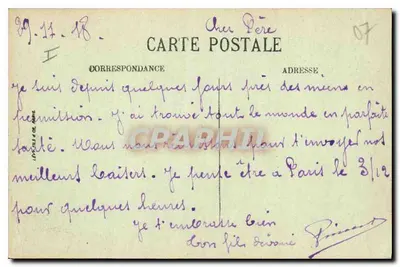 29.11.18.
Cher Père
I
07
CARTE POSTALE
CORRESPONDANCE
ADRESSE
Je suis depuis quelques jours près des miens en
permission. J'ai trouvé tout le monde en parfaite
santé. Nous nous pour t'envoyer nos
meilleurs baisers. Je pense être à Paris le 3/12
pour quelques heures.
Je t'embrasse bien
Ton fils dévoué